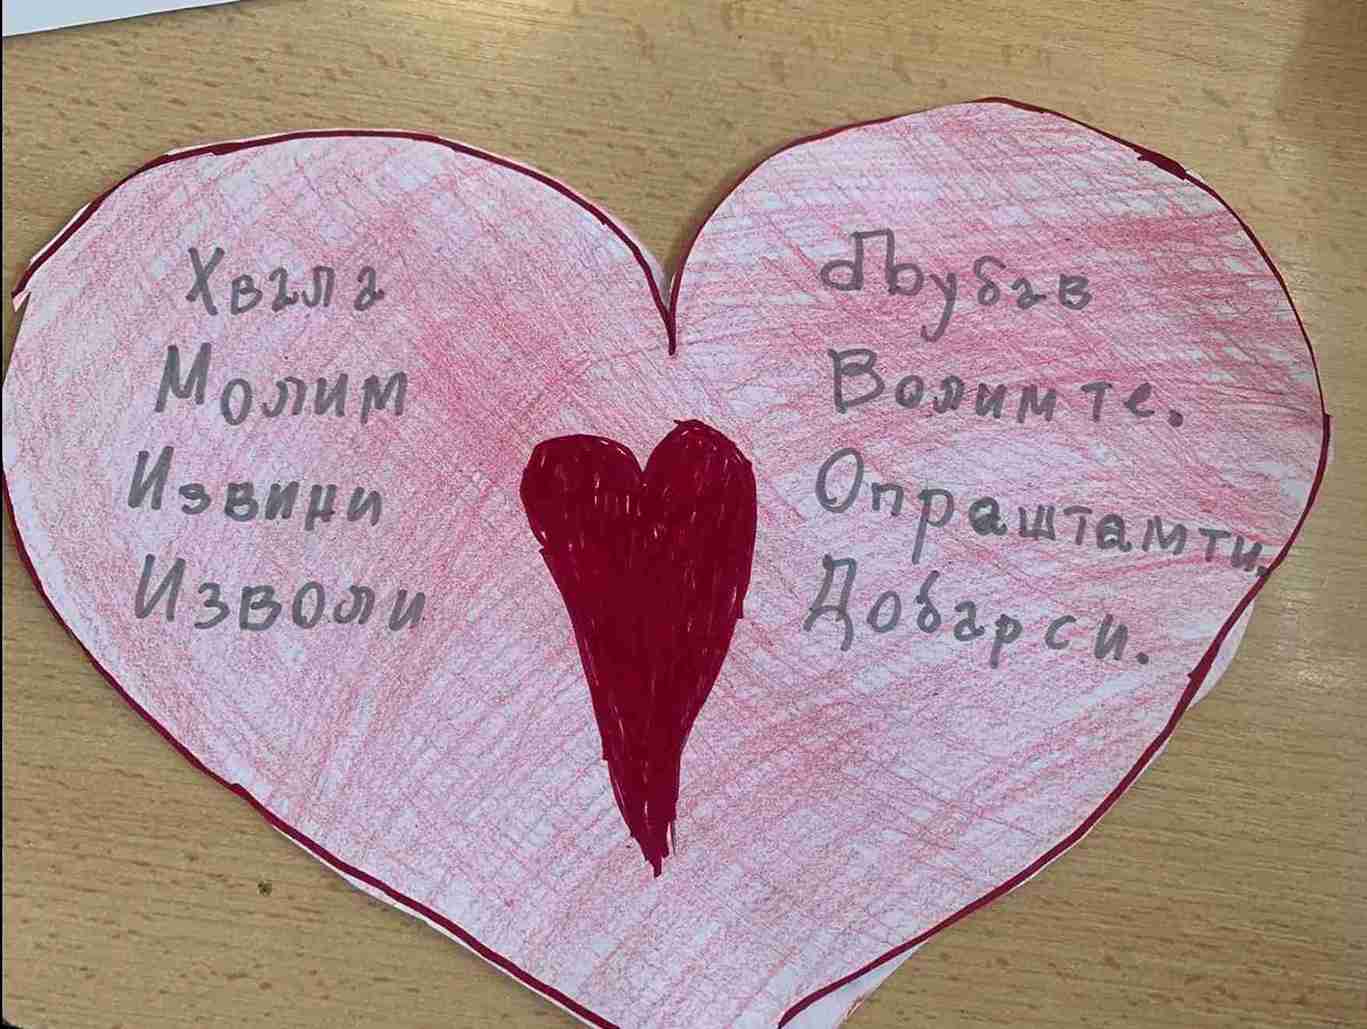 Хвала
Молим
Извини
Изволи
Љубав
Волим те.
Опраштам ти.
Добар си.